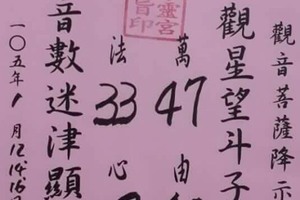 觀音菩薩降示
觀星望斗子
萬47由
法33心
音數迷津顯
一〇五年1月12.14.16日
靈宮
旨印